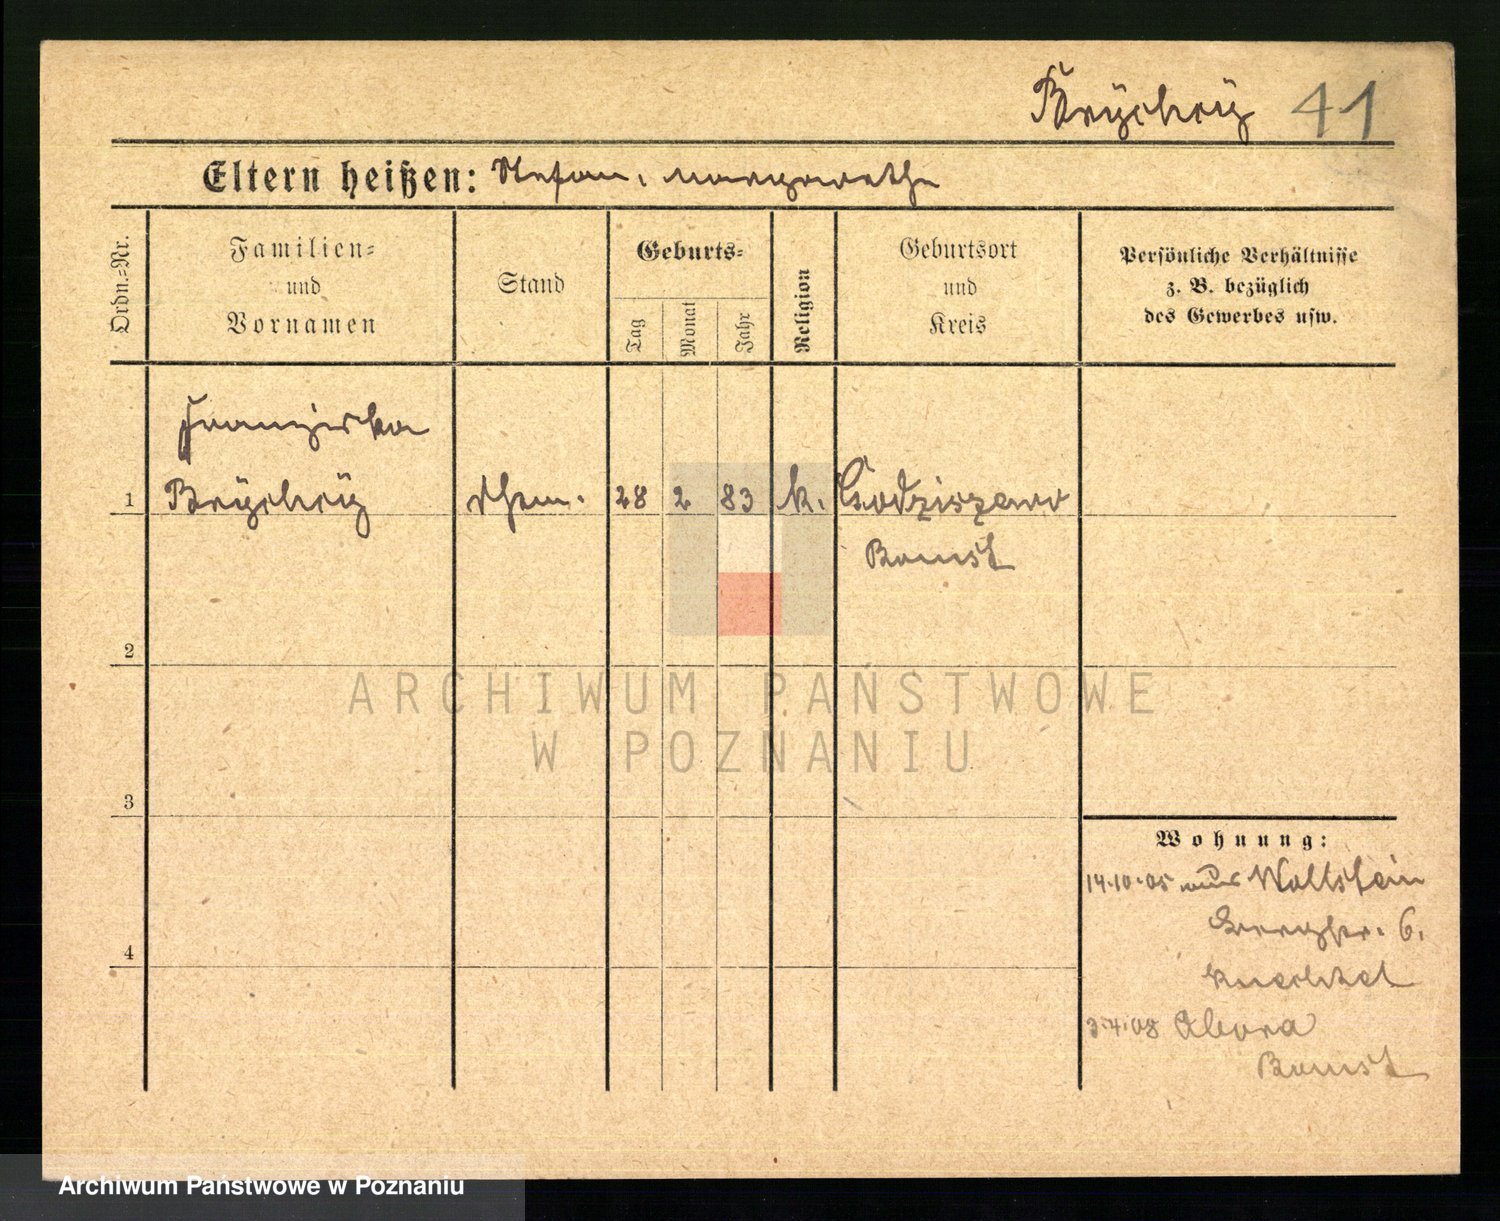 Brÿchcÿ 41
Eltern heißen: Stefan, Margarethe
Ordn.-Nr.
Familien-
und
Vornamen
Stand
Geburts-
Tag
Monat
Jahr
Religion
Geburtsort
und
Kreis
Persönliche Verhältnisse
z. B. bezüglich
des Gewerbes usw.
Franziska
1 Brÿchcÿ 28 2 83 k. Godziszewo
Bomst
2
ARCHIWUM PAŃSTWOWE
W POZNANIU
3
Wohnung:
14.10.05 aus Wollstein
6.
4
3.4.08
Bomst
Archiwum Państwowe w Poznaniu